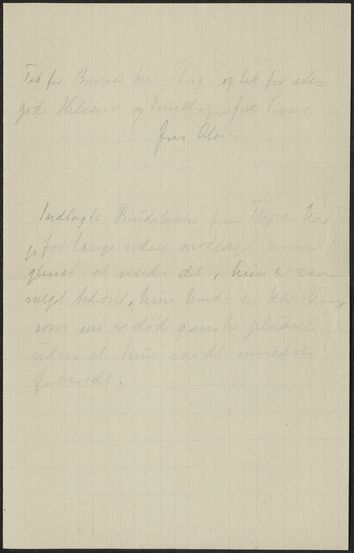 Tak for Brevet kære Thora og tak for alle
gode Hilsener og fra
Fru Olsen
Indlagte fra Thyra har
jeg for længe siden modtaget men
glemt at sende det, hun er saa
meget bedrøvet, hun havde en kær
som nu er død ganske pludselig
uden at hun var det mindste
forberedt.